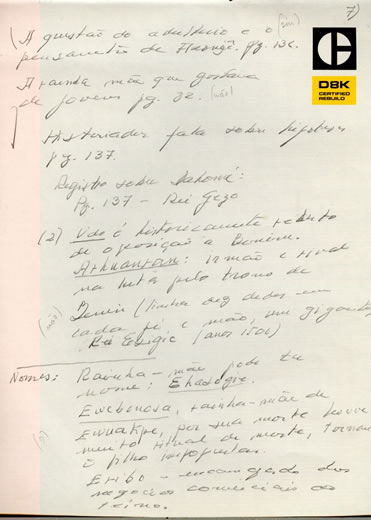 7)
(A questão do adultério e o [sim]
pensamento de pg. 136.
A rainha mãe que gostava
de jovens pg. 32. [não]
Historiador fala sobre
pg. 137.
Registro sobre Dahomé:
Pg. 137 – Rei Gezo
(2) Udo é historicamente reduto
de oposição a Benin.
: irmão e rival
na luta pelo trono de
Benin (tinha dez dedos em
cada pé e mão, um gigante)
Rei Esigie (anos 1500)
(não)
Nomes: Rainha-mãe pode ter
nome:
, rainha-mãe de
, por sua morte houve
ritual de morte, tornan
o filho
Eribo – encarregado dos
negócios comerciais do
reino.
C
DBK
CERTIFIED
REBUILD